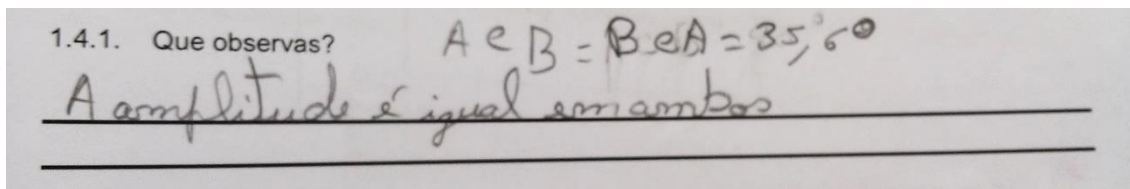 1.4.1. Que observas? A e B = B e A = 35,6°
A amplitude é igual em ambos